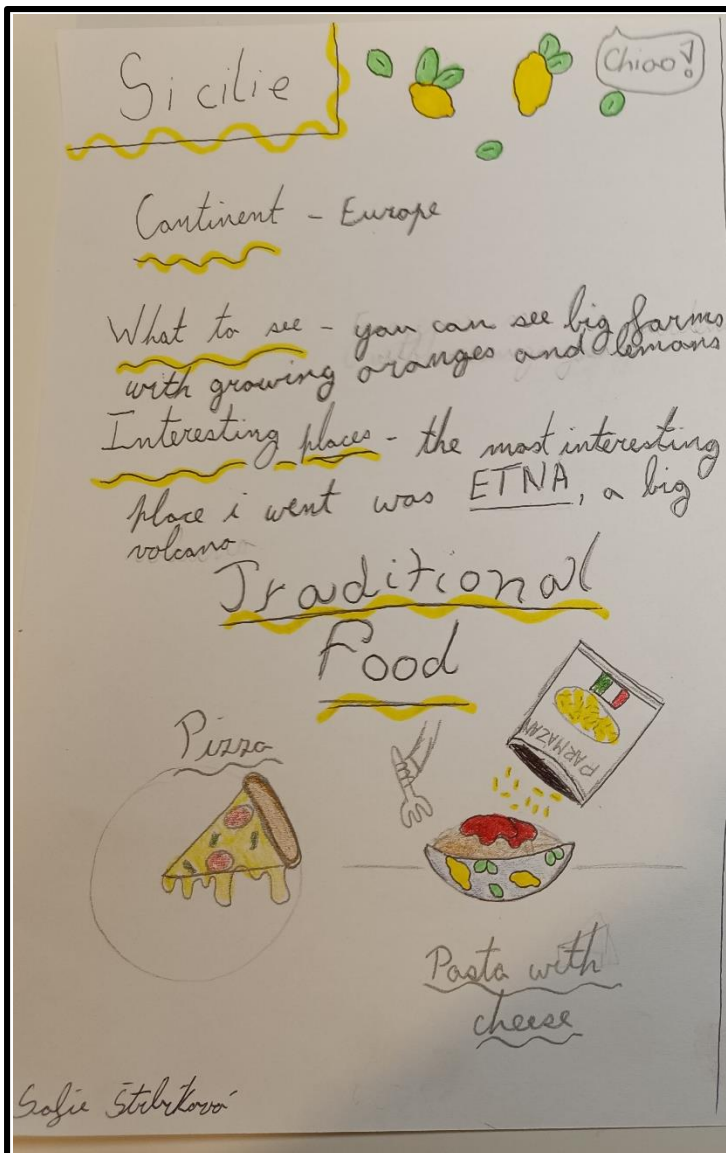 Sicilie
Chiao!
Continent - Europe
What to see - you can see big farms
with growing oranges and lemons
Interesting places - the most interesting
place i went was ETNA, a big
volcano
Traditional
Food
Pizza
PARMAZAN
Pasta with
cheese
Sofie